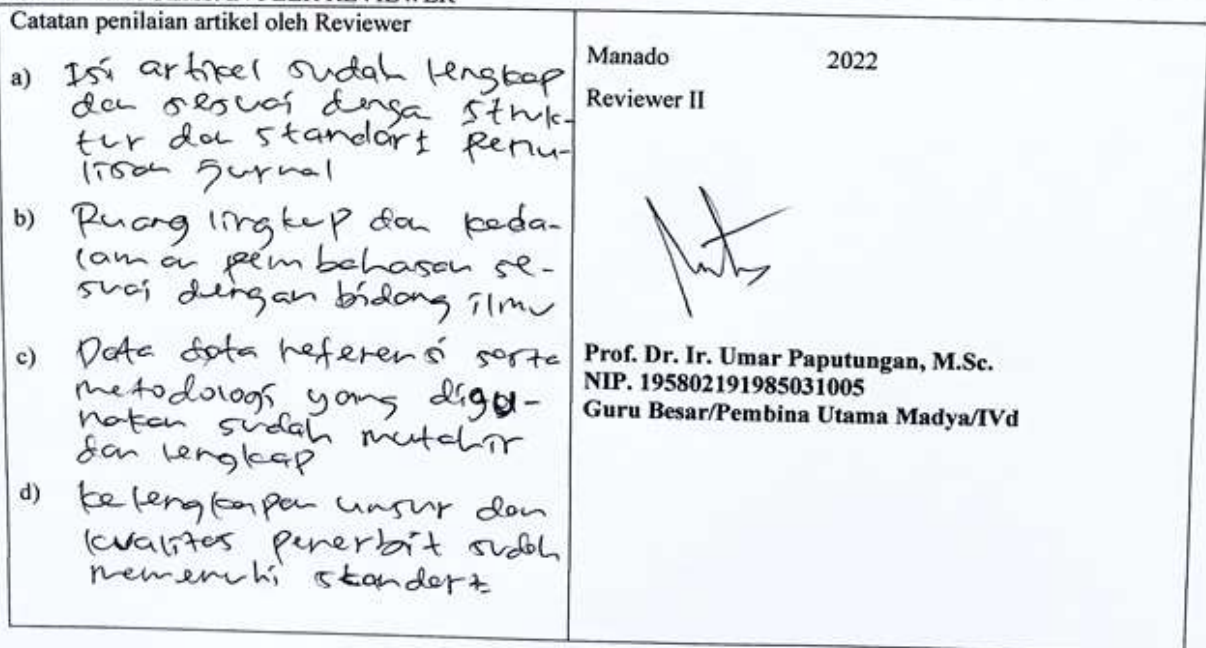 Catatan penilaian artikel oleh Reviewer
a) Isi artikel sudah lengkap
dan sesuai denga struk-
tur dan standart penu-
lisan Jurnal
b) Ruang lingkup dan keda-
laman pembahasan se-
suai dengan bidang ilmu
c) Data data referensi serta
metodologi yang digu-
nakan sudah mutahir
dan lengkap
d) kelengkapan unsur dan
kualitas penerbit sudah
memenuhi standart
Manado 2022
Reviewer II
Prof. Dr. Ir. Umar Paputungan, M.Sc.
NIP. 195802191985031005
Guru Besar/Pembina Utama Madya/IVd